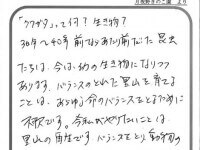 月夜野きのこ園 より
「クワガタ」って何？生き物？
30年〜40年前なら あたり前だった 昆虫
たちは、今は、幻の生き物になりつつ
あります。バランスのとれた里山を育てる
ことは、あらゆる命のバランスをとる為に
不可欠です。今私がやりたいことは、
里山の再生です。バランスをとり、